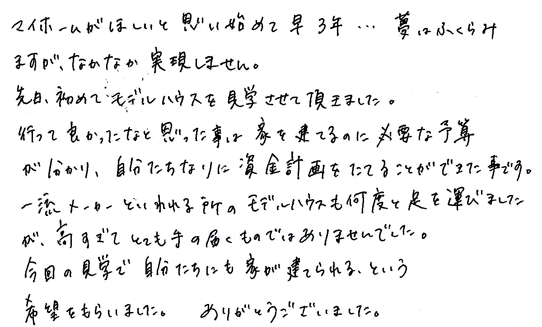 マイホームがほしいと思い始めて早3年… 夢はふくらみ
ますが、なかなか実現しません。
先日、初めてモデルハウスを見学させて頂きました。
行って良かったなと思った事は家を建てるのに必要な予算
が分かり、自分たちなりに資金計画をたてることができた事です。
一流メーカーといわれる所のモデルハウスも何度と足を運びました
が、高すぎてとても手の届くものではありませんでした。
今回の見学で自分たちにも家が建てられる、という
希望をもらいました。 ありがとうございました。